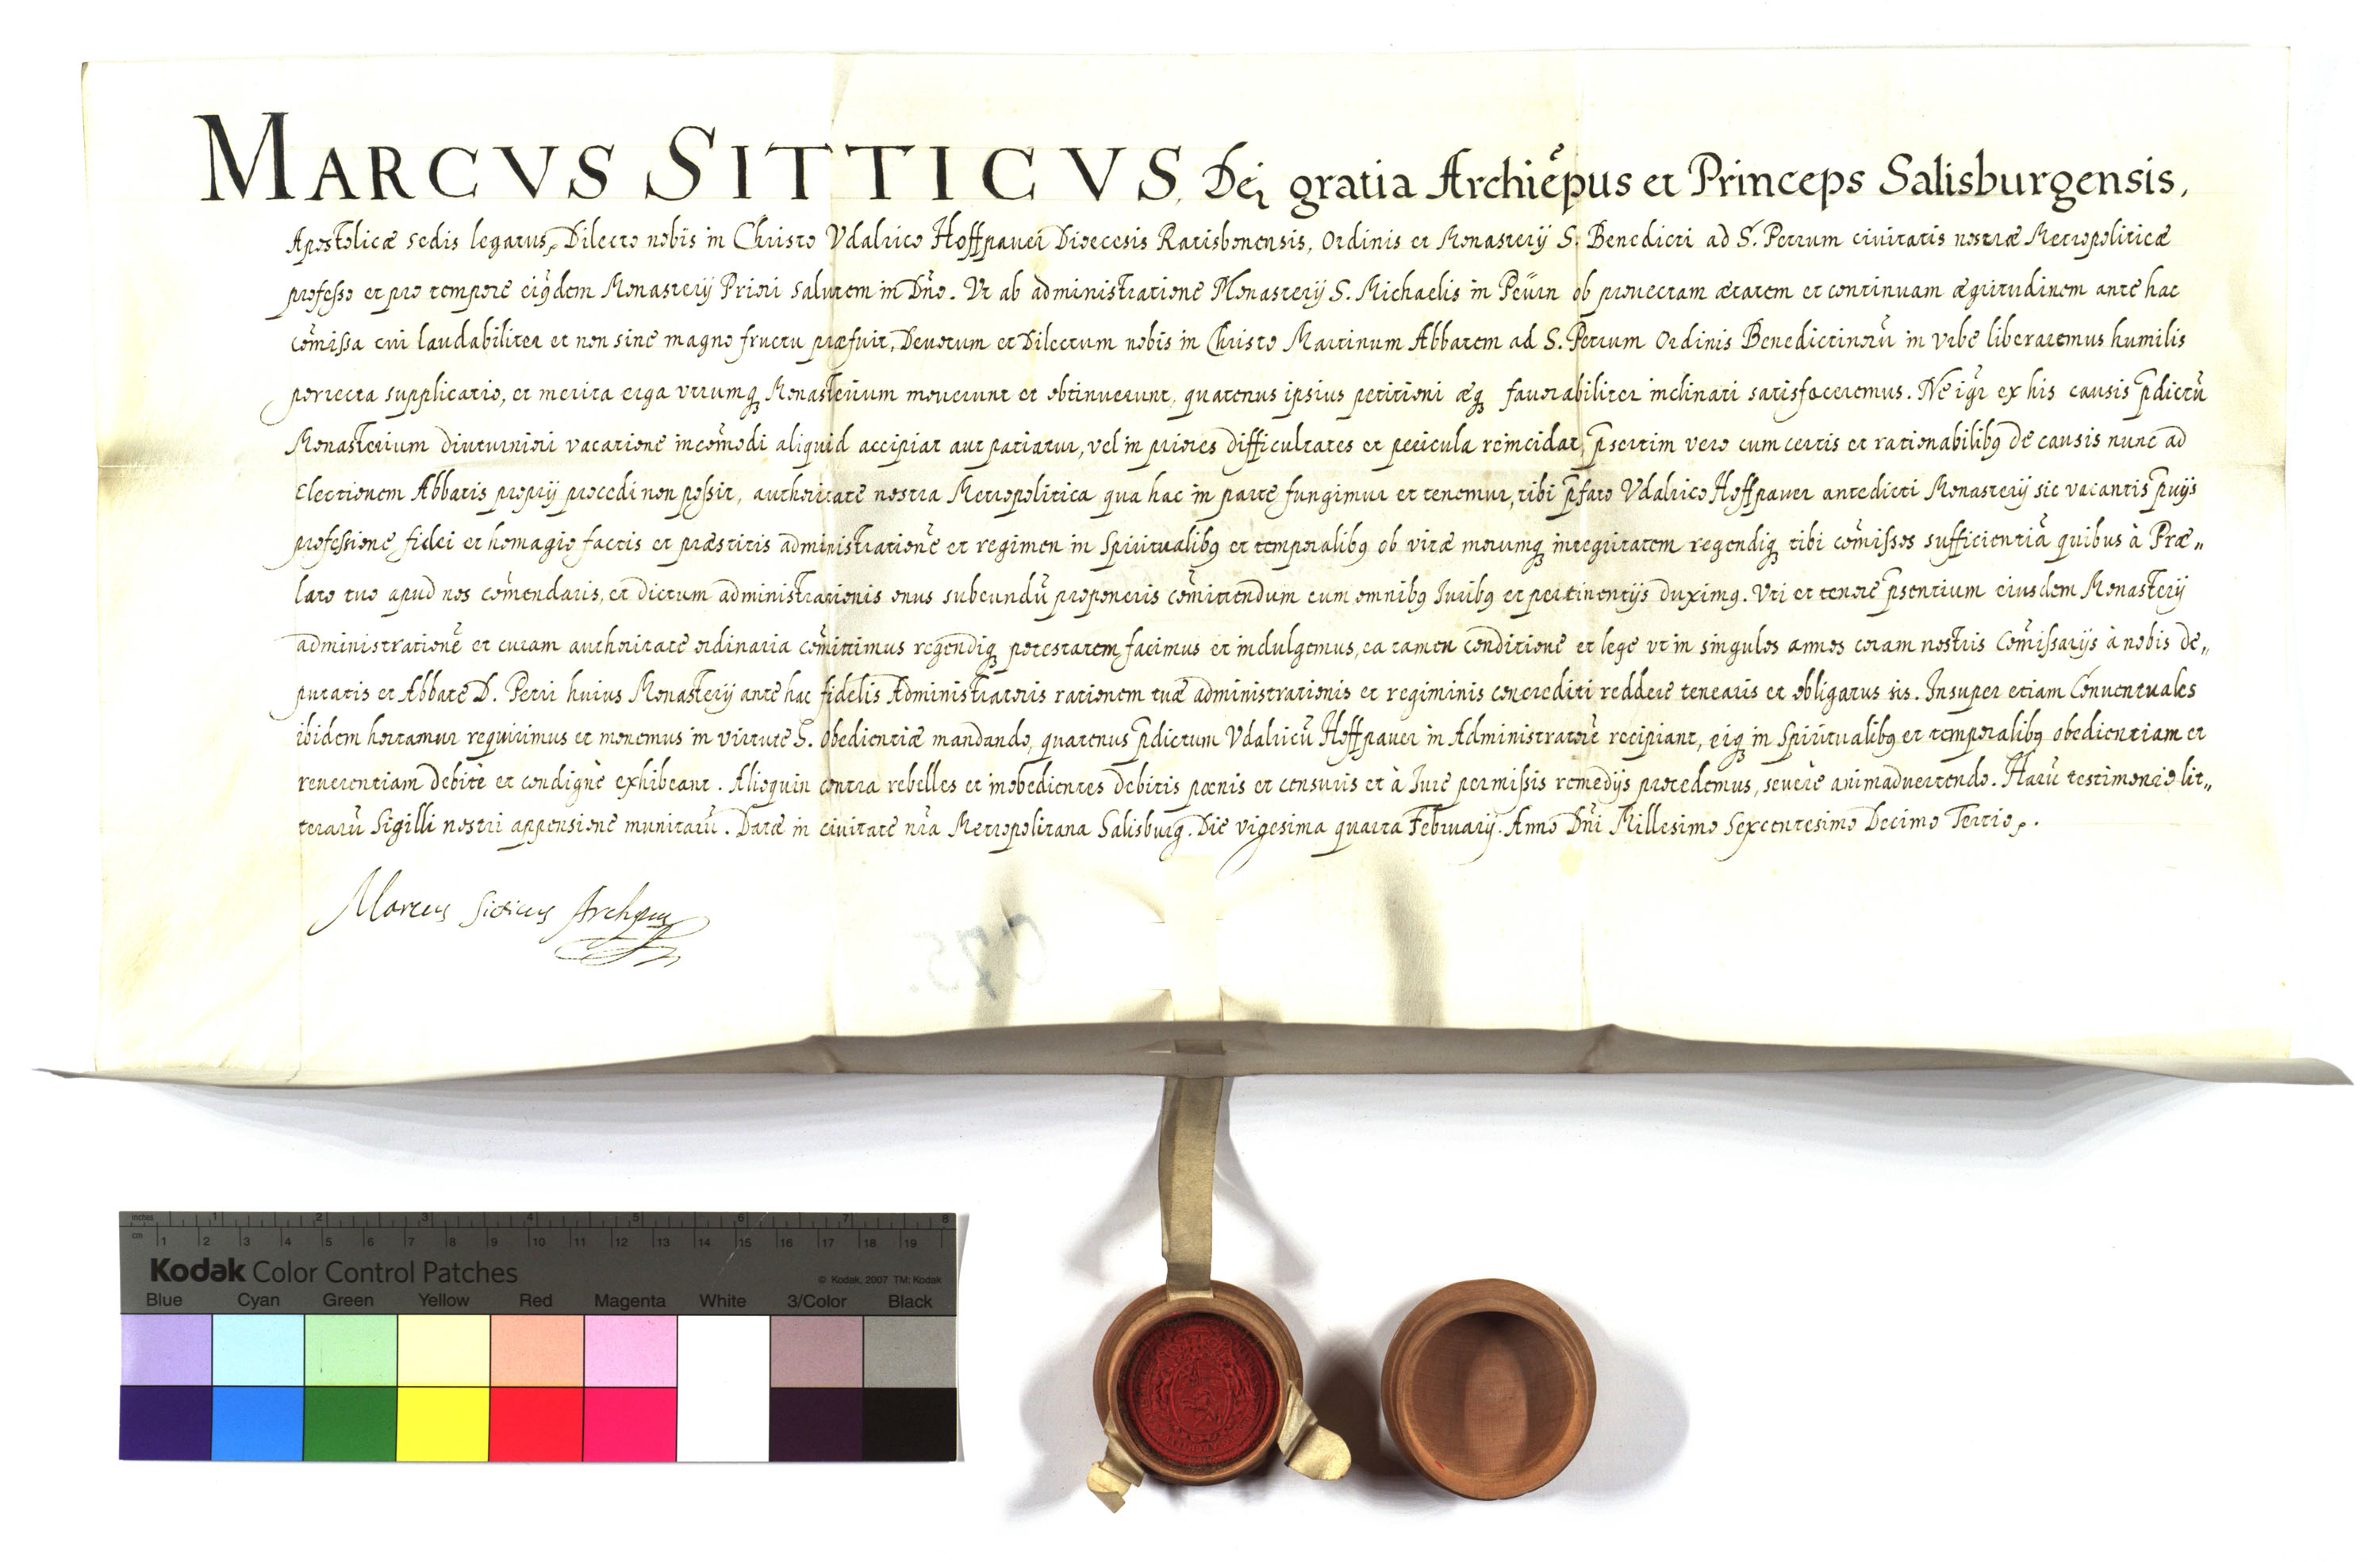 MARCVS SITTICVS, Dei gratia Archiēpus et Princeps Salisburgensis,
Apostolicæ sedis legatus, Dilecto nobis in Christo Vdalrico Hoffpauer Dioecesis Ratisbonensis, Ordinis et Monasterij S. Benedicti ad S. Petrum civitatis nostræ Metropoliticæ
professo et pro tempore eiq̄dem Monasterij Priori salutem in Dn̄o. Vt ab administratione Monasterij S. Michaelis in Peürn ob prouectam ætatem et continuam ægritudinem ante hac
com̄issa cui laudabiliter et non sine magno fructu præfuit, Deuotum et Dilectum nobis in Christo Martinum Abbatem ad S. Petrum Ordinis Benedictinorū in vrbe liberaremus humilis
porrecta supplicatio, et merita erga vtrumq; Monasterium mouerunt et obtinuerunt, quatenus ipsius petitioni æq; fauorabiliter inclinati satisfaceremus. Ne igr̄ ex his causis p̄dictū
Monasterium diuturniori vacatione incom̄odi aliquid accipiat aut patiatur, vel in priores difficultates et pericula reincidat, p̄sertim vero cum certis et rationabilibq; de causis nunc ad
Electionem Abbatis proprij procedi non possit, authoritate nostra Metropolitica qua hac in parte fungimur et tenemur, tibi p̄fato Vdalrico Hoffpauer antedicti Monasterij sic vacantis p̄uijs
professione fidei et homagio factis et præstitis administrationē et regimen in Spiritualibq; et temporalibq; ob vitæ morumq; integritatem regendiq; tibi com̄issos sufficientiā quibus à Præ„
lato tuo apud nos com̄endaris, et dictum administrationis onus subeundū proponeris com̄ittendum cum omnibq; Iuribq; et pertinentijs duximq;. Vti et tenore p̄sentium eiusdem Monasterij
administrationē et curam authoritate ordinaria com̄ittimus regendiq; potestatem facimus et indulgemus, ea tamen conditione et lege vt in singulos annos coram nostris Com̄issarijs à nobis de„
putatis et Abbate D. Petri huius Monasterij ante hac fidelis Administratoris rationem tuæ administrationis et regiminis concrediti reddere tenearis et obligatus sis. Insuper etiam Conuentuales
ibidem hortamur requirimus et monemus in virtute S. obedientiæ mandando, quatenus p̄dictum Vdalricū Hoffpauer in Administratorē recipiant, eiq; in Spiritualibq; et temporalibq; obedientiam et
reuerentiam debitè et condignè exhibeant. Alioquin contra rebelles et inobedientes debitis pœnis et censuris et à Iure permissis remedijs procedemus, seuere animaduertendo. Harū testimonio lit„
terarū Sigilli nostri appensione munitarū. Datæ in ciuitate nr̄a Metropolitana Salisburg. Die vigesima quarta February. Anno Dn̄i Millesimo Sexcentesimo Decimo Tertio.
Marcus Sitticus Archepus
675.
inches 1 2 3 4 5 6 7 8
cm 1 2 3 4 5 6 7 8 9 10 11 12 13 14 15 16 17 18 19
Kodak Color Control Patches
© Kodak, 2007 TM: Kodak
Blue Cyan Green Yellow Red Magenta White 3/Color Black